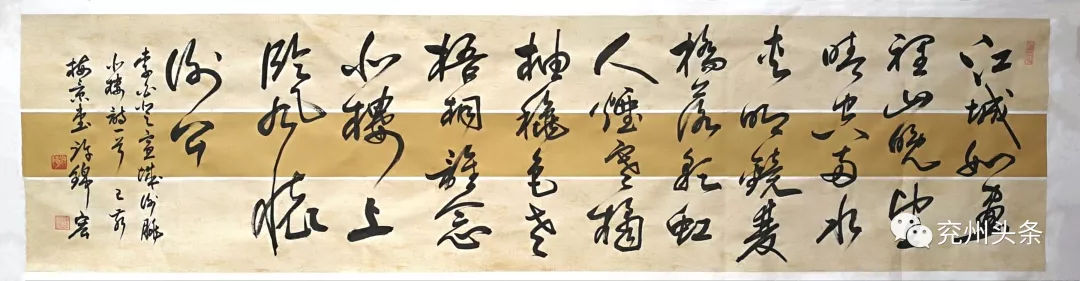 江城如画
裡山晓望
晴空两水
夹明镜双
桥落彩虹
人煙寒橘
柚秋色老
梧桐谁念
北楼上
临风怀
谢公
李白登宣城谢朓
北楼诗一首 己亥
梅京书 许锦宏
兖州头条